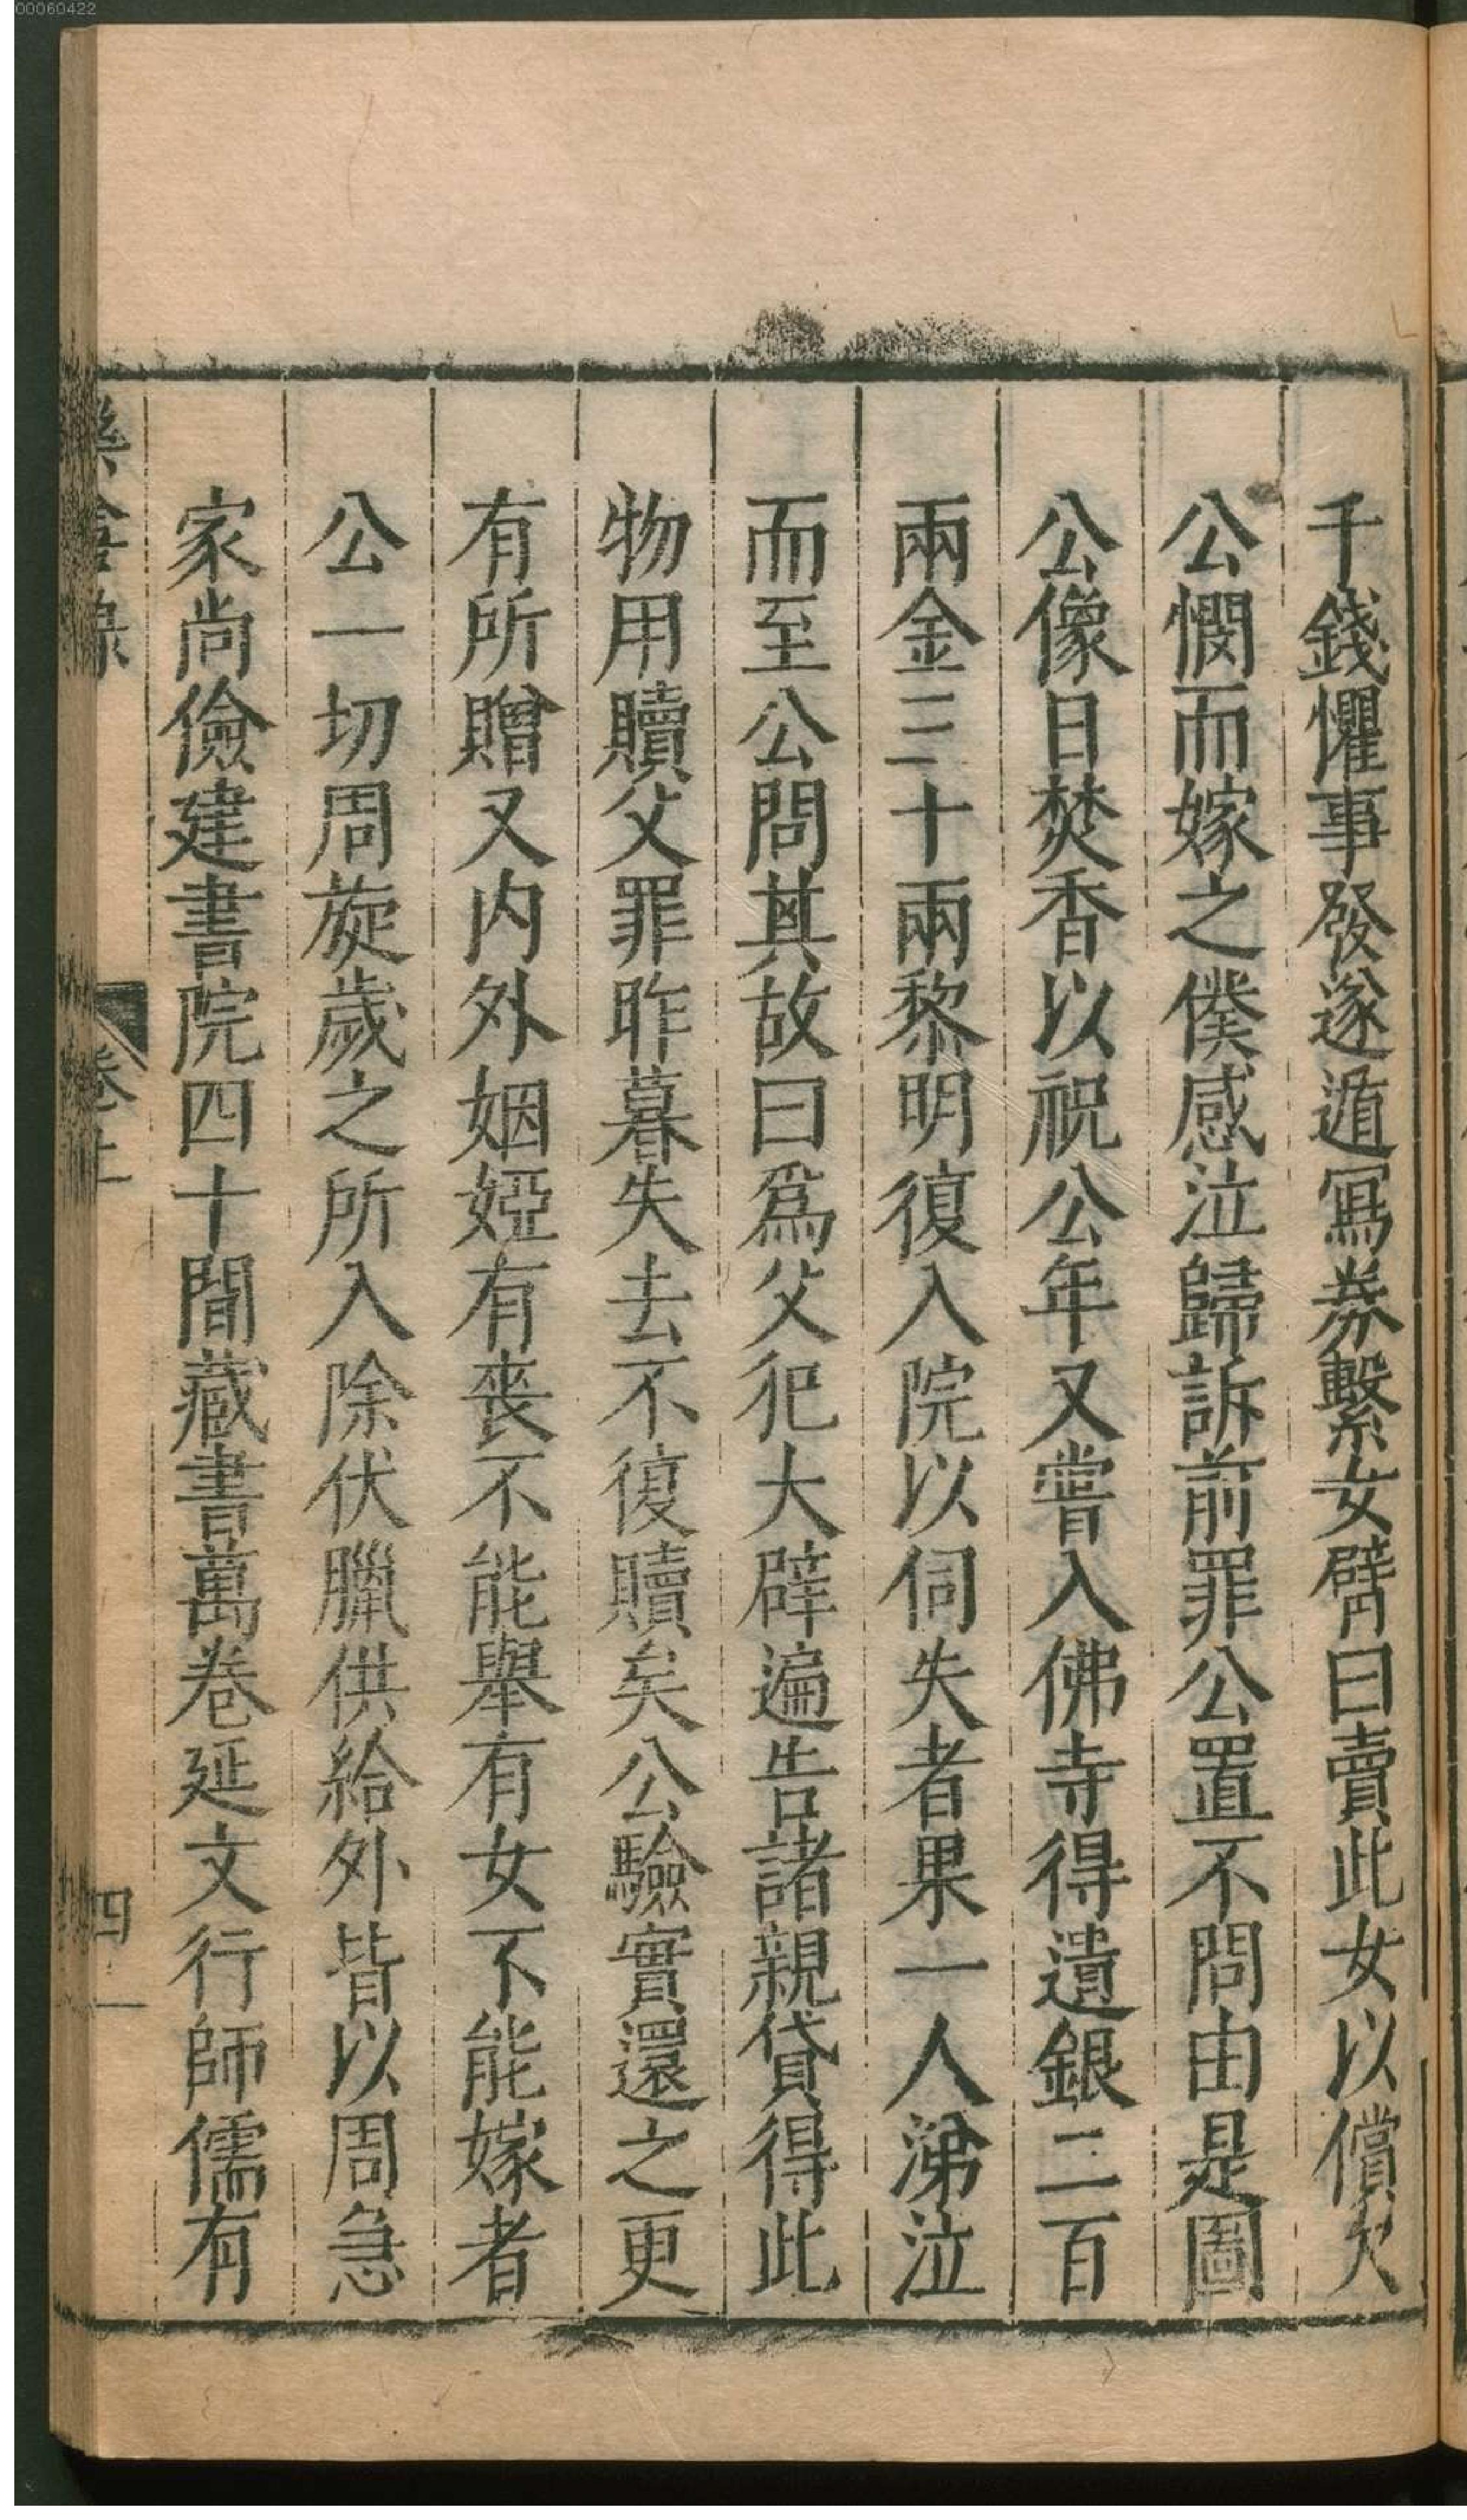 00060422
千錢懼事發遂遁冩券繫女臂曰賣此女以償欠
公憫而嫁之僕感泣歸訴前罪公置不問由是圖
公像日焚香以祝公年又嘗入佛寺得遺銀二百
兩金三十兩黎明復入院以伺失者果一人涕泣
而至公問其故曰爲父犯大辟遍告諸親貸得此
物用贖父罪昨暮失去不復贖矣公驗實還之更
有所贈又内外姻婭有丧不能舉有女不能嫁者
公一切周旋歲之所入除伏臘供給外皆以周急
家尚儉建書院四十間藏書萬卷延文行師儒有
卷上
四